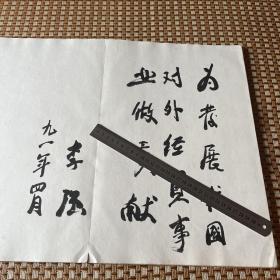 为發展我國
对外经贸事
业做贡献
李强
九一年四月